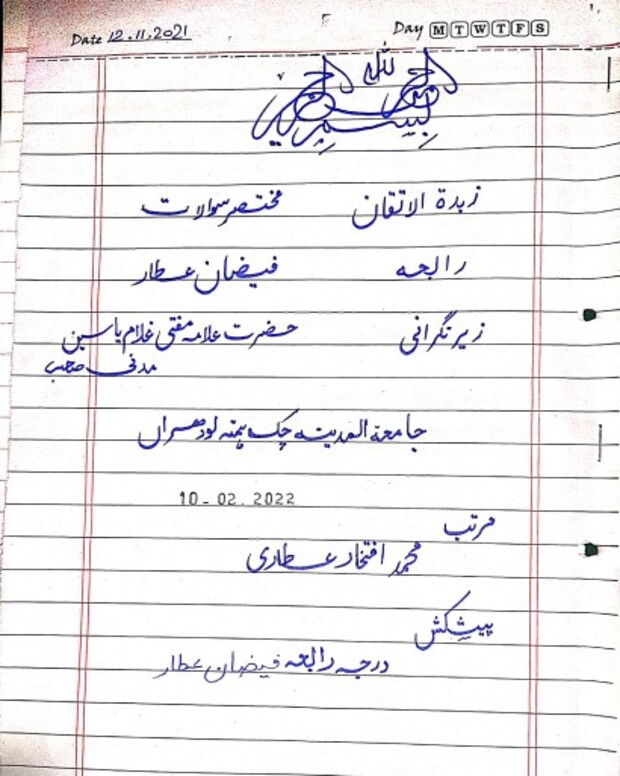 Date 12.11.2021 Day M T W T F S
بسم اللہ الرحمن الرحیم
زبدۃ الاتقان مختصر سوالات
رابعہ فیضان عطار
زیر نگرانی حضرت علامہ مفتی غلام یاسین
مدنی صاحب
جامعۃ المدینہ چک ہمتہ لودھراں
10-02.2022
مرتب
محمد افتخار عطاری
پیشکش
درجہ رابعہ فیضان عطار